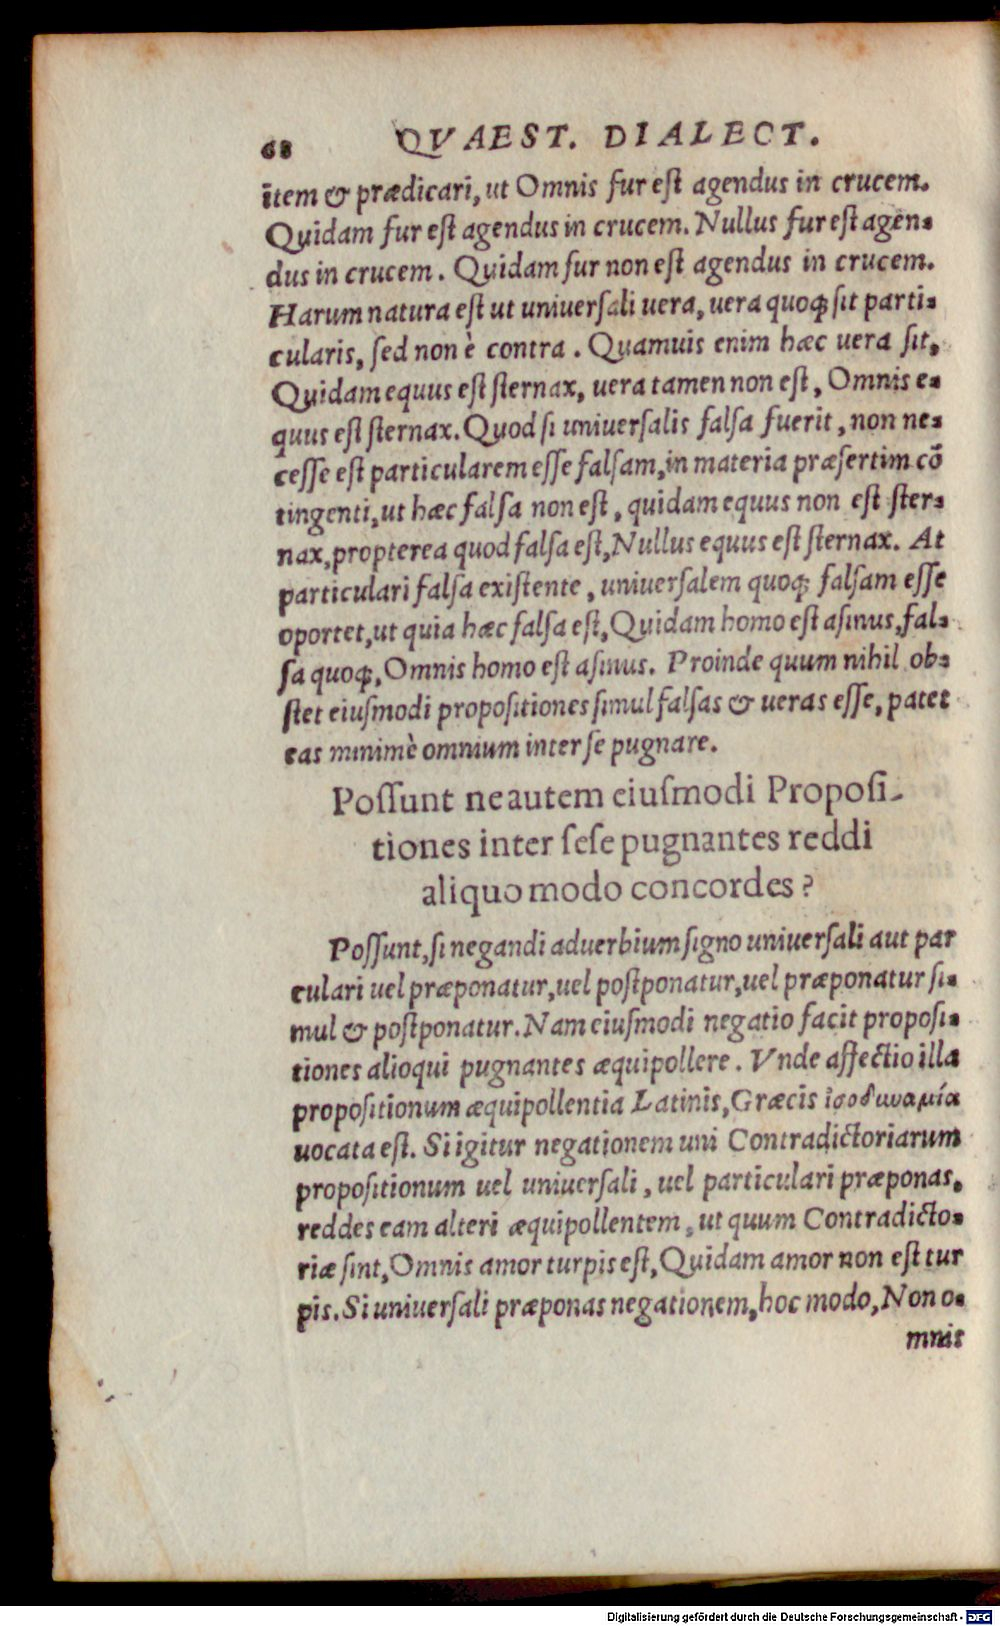 68 QVAEST. DIALECT.
item & prædicari, ut Omnis fur est agendus in crucem.
Quidam fur est agendus in crucem. Nullus fur est agen-
dus in crucem. Quidam fur non est agendus in crucem.
Harum natura est ut uniuersali uera, uera quoq; sit parti-
cularis, sed non è contra. Quamuis enim hæc uera sit,
Quidam equus est sternax, uera tamen non est, Omnis e-
quus est sternax. Quod si uniuersalis falsa fuerit, non ne-
cesse est particularem esse falsam, in materia præsertim cō
tingenti, ut hæc falsa non est, quidam equus non est ster-
nax, propterea quod falsa est, Nullus equus est sternax. At
particulari falsa existente, uniuersalem quoq; falsam esse
oportet, ut quia hæc falsa est, Quidam homo est asinus, fal-
sa quoq;, Omnis homo est asinus. Proinde quum nihil ob-
stet eiusmodi propositiones simul falsas & ueras esse, patet
eas minimè omnium inter se pugnare.
Possunt ne autem eiusmodi Proposi-
tiones inter sese pugnantes reddi
aliquo modo concordes?
Possunt, si negandi aduerbium signo uniuersali aut par
culari uel præponatur, uel postponatur, uel præponatur si-
mul & postponatur. Nam eiusmodi negatio facit proposi-
tiones alioqui pugnantes æquipollere. Vnde affectio illa
propositionum æquipollentia Latinis, Græcis ἰσοδυναμία
uocata est. Si igitur negationem uni Contradictoriarum
propositionum uel uniuersali, uel particulari præponas,
reddes eam alteri æquipollentem, ut quum Contradicto-
riæ sint, Omnis amor turpis est, Quidam amor non est tur
pis. Si uniuersali præponas negationem, hoc modo, Non o-
mnis
Digitalisierung gefördert durch die Deutsche Forschungsgemeinschaft - DFG